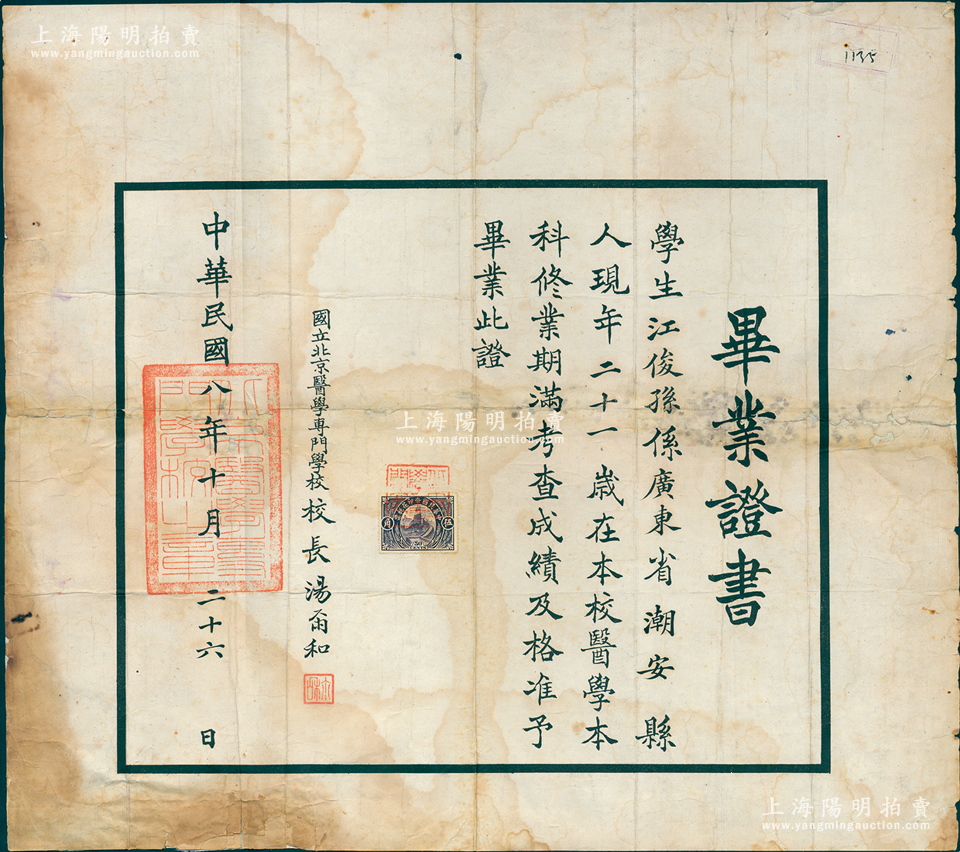 上海陽明拍賣
www.yangmingauction.com
畢業證書
學生江俊孫係廣東省潮安縣
人現年二十一歲在本校醫學本
科修業期滿考查成績及格准予
畢業此證
國立北京醫學專門學校校長湯爾和
中華民國八年十月二十六日
北京醫學專門學校之章
上海陽明拍賣
www.yangmingauction.com
上海陽明拍賣
www.yangmingauction.com